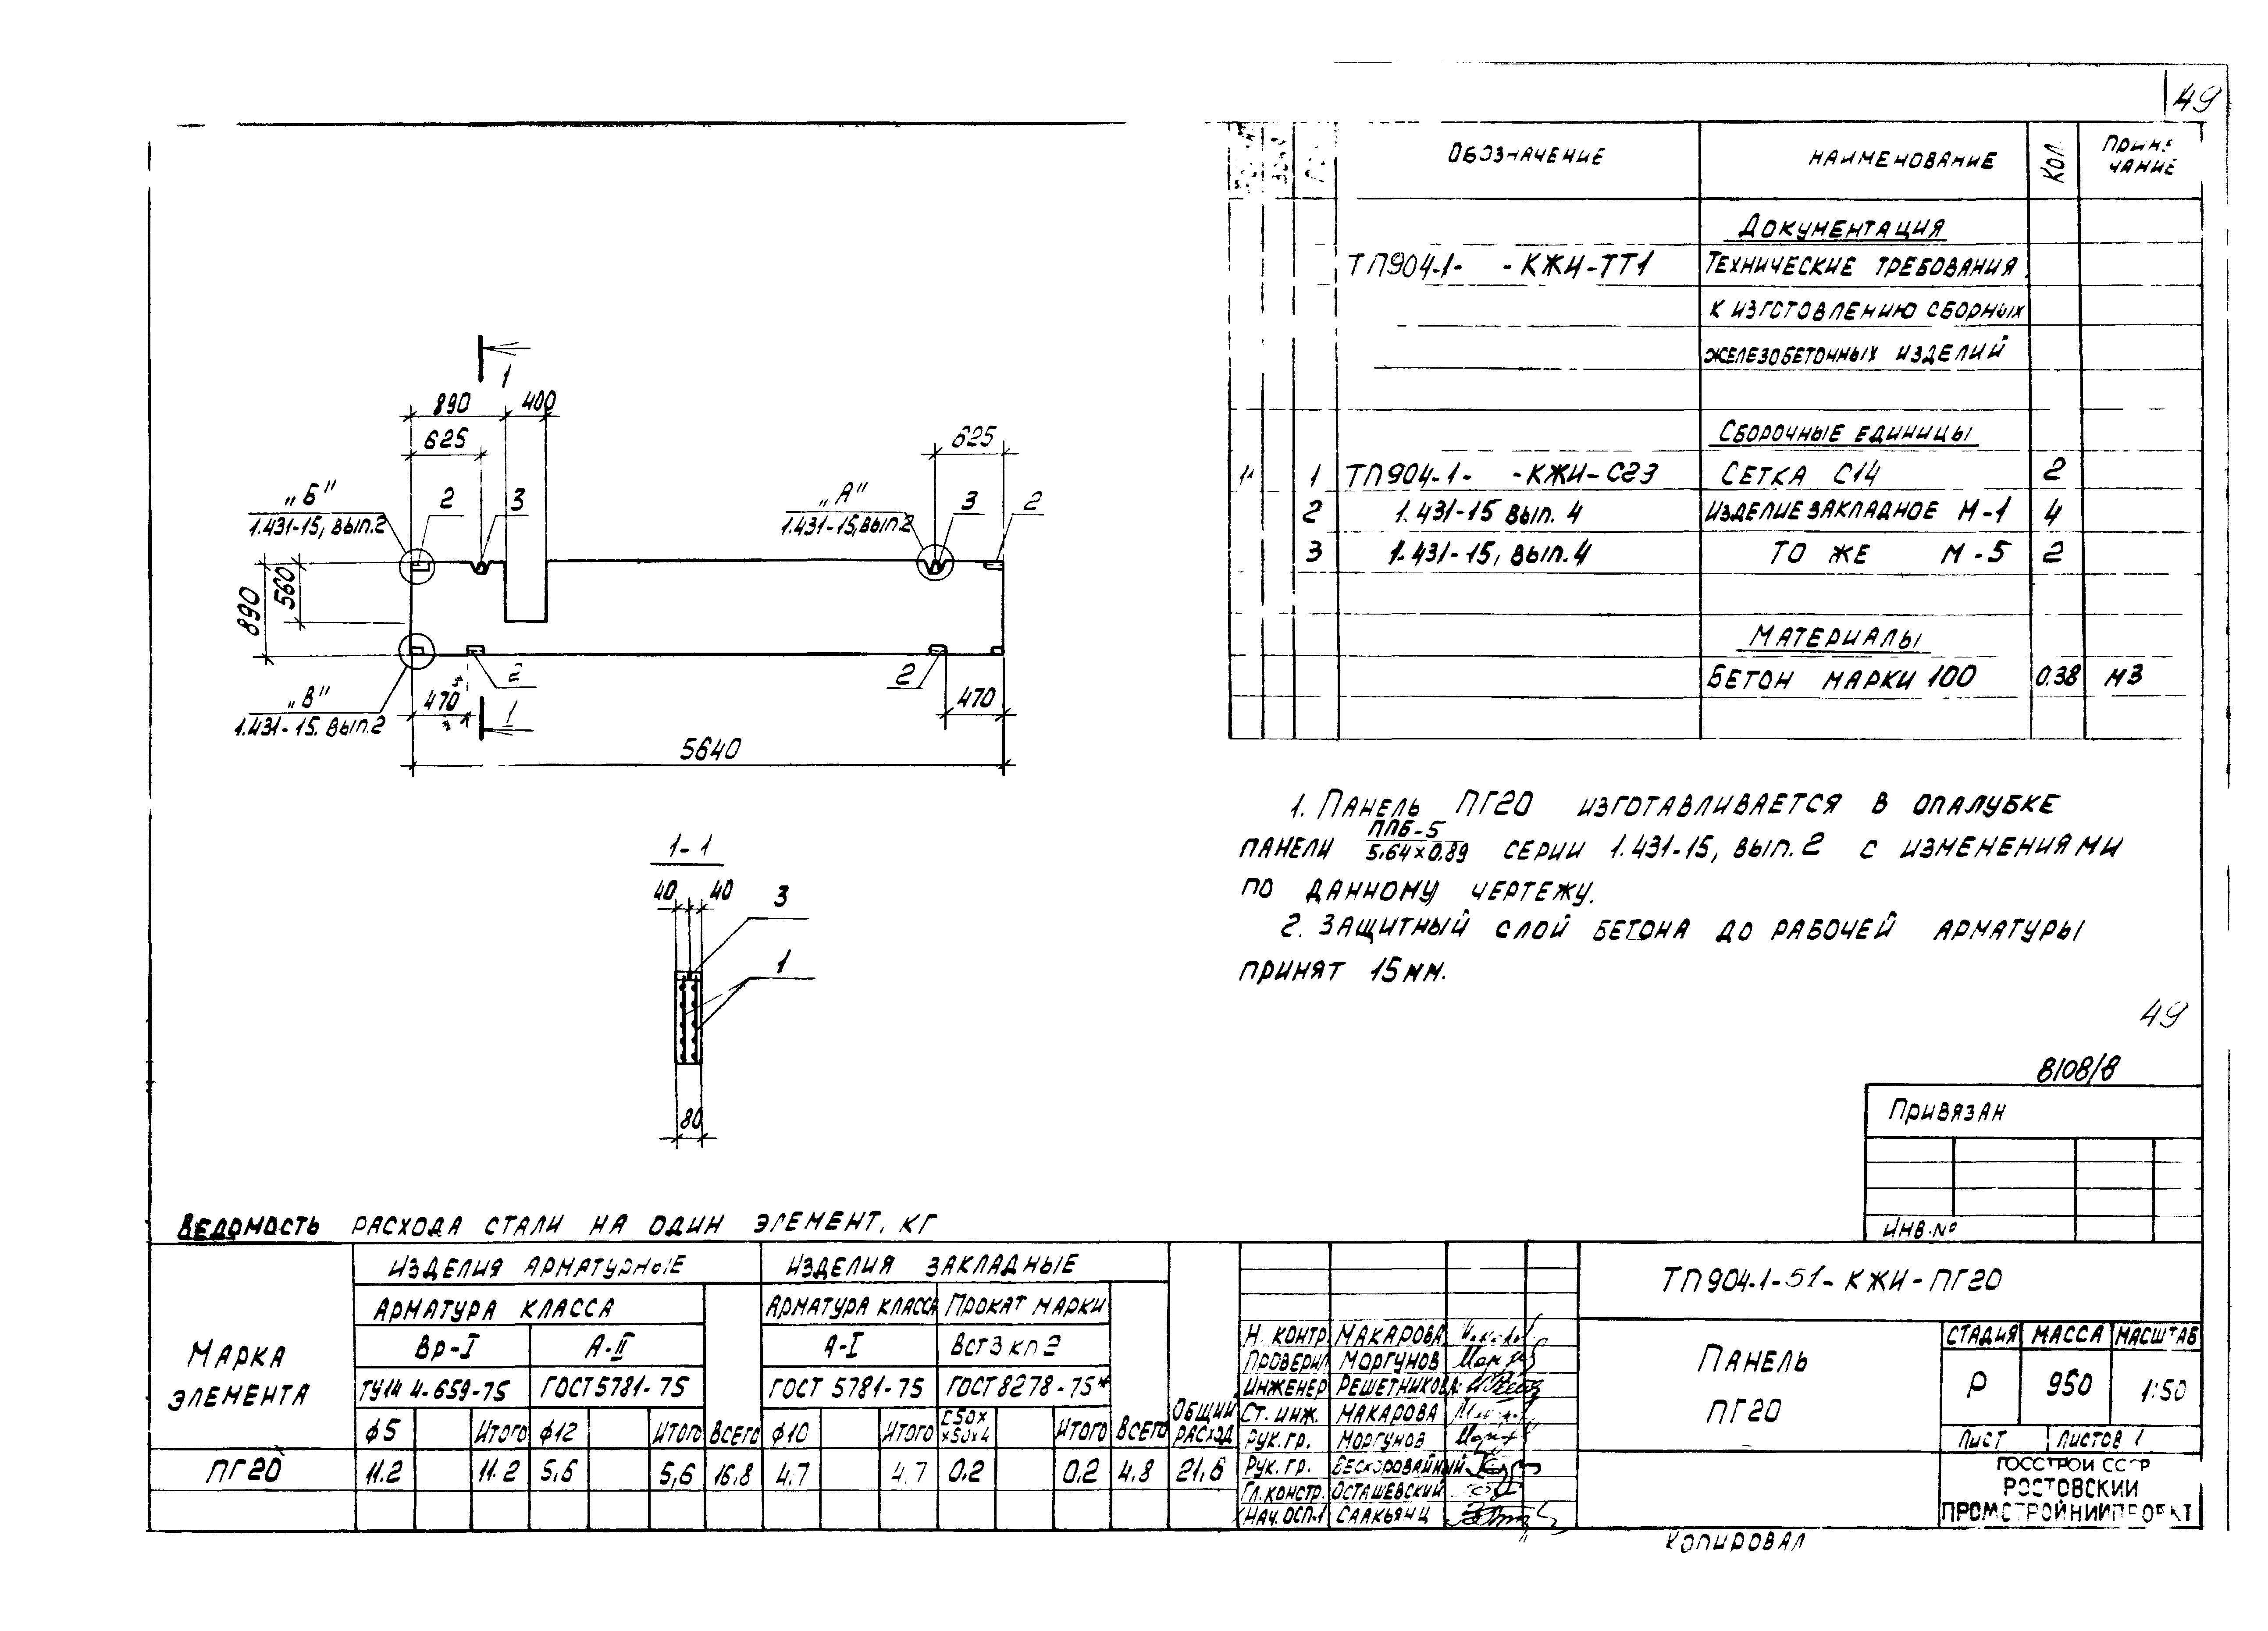 49
ОБОЗНАЧЕНИЕ НАИМЕНОВАНИЕ КОЛ.
ЧАНИЕ
ДОКУМЕНТАЦИЯ
ТП904-1- -КЖИ-ТТ1 ТЕХНИЧЕСКИЕ ТРЕБОВАНИЯ
К ИЗГОТОВЛЕНИЮ СБОРНЫХ
ЖЕЛЕЗОБЕТОННЫХ ИЗДЕЛИЙ
СБОРОЧНЫЕ ЕДИНИЦЫ
11 1 ТП904-1- -КЖИ-С23 СЕТКА С14 2
2 1.431-15 ВЫП. 4 ИЗДЕЛИЕ ЗАКЛАДНОЕ М-1 4
3 1.431-15, ВЫП.4 ТО ЖЕ М-5 2
МАТЕРИАЛЫ
БЕТОН МАРКИ 100 0.38 М3
1
890 400
625 625
„Б" 2 3 „А" 3 2
1.431-15, ВЫП.2 1.431-15, ВЫП.2
890 560
2 2
„В" 470 1 470
1.431-15. ВЫП.2
5640
1-1
40 40 3
1
80
1. ПАНЕЛЬ ПГ20 ИЗГОТАВЛИВАЕТСЯ В ОПАЛУБКЕ
ПАНЕЛИ ППБ-5
5.64×0.89 СЕРИИ 1.431-15, ВЫП. 2 С ИЗМЕНЕНИЯМИ
ПО ДАННОМУ ЧЕРТЕЖУ.
2. ЗАЩИТНЫЙ СЛОЙ БЕТОНА ДО РАБОЧЕЙ АРМАТУРЫ
ПРИНЯТ 15ММ.
49
8108/8
ПРИВЯЗАН
ИНВ.№
ВЕДОМОСТЬ РАСХОДА СТАЛИ НА ОДИН ЭЛЕМЕНТ, КГ
МАРКА
ЭЛЕМЕНТА
ИЗДЕЛИЯ АРМАТУРНЫЕ ИЗДЕЛИЯ ЗАКЛАДНЫЕ
АРМАТУРА КЛАССА АРМАТУРА КЛАССА ПРОКАТ МАРКИ
Вр-I А-II А-I ВСТ3 КП2
ТУ14 4-659-75 ГОСТ5781-75 ГОСТ 5781-75 ГОСТ8278-75*
ϕ5 ИТОГО ϕ12 ИТОГО ВСЕГО ϕ10 ИТОГО С50× ×50×4 ИТОГО ВСЕГО ОБЩИЙ РАСХОД
ПГ20 11.2 11.2 5,6 5,6 16,8 4.7 4.7 0.2 0.2 4.8 21,6
Н. КОНТР. МАКАРОВА
ПРОВЕРИЛ МОРГУНОВ
ИНЖЕНЕР РЕШЕТНИКОВА
СТ. ИНЖ. МАКАРОВА
РУК. ГР. МОРГУНОВ
РУК. ГР. БЕСКОРОВАЙНЫЙ
ГЛ.КОНСТР. ОСТАШЕВСКИЙ
НАЧ.ОСП-1 СААКЬЯНЦ
ТП904-1-51-КЖИ-ПГ20
ПАНЕЛЬ
ПГ20
СТАДИЯ МАССА МАСШТАБ
Р 950 1:50
ЛИСТ ЛИСТОВ 1
ГОССТРОЙ СССР
РОСТОВСКИЙ
ПРОМСТРОЙНИИПРОЕКТ
КОПИРОВАЛ